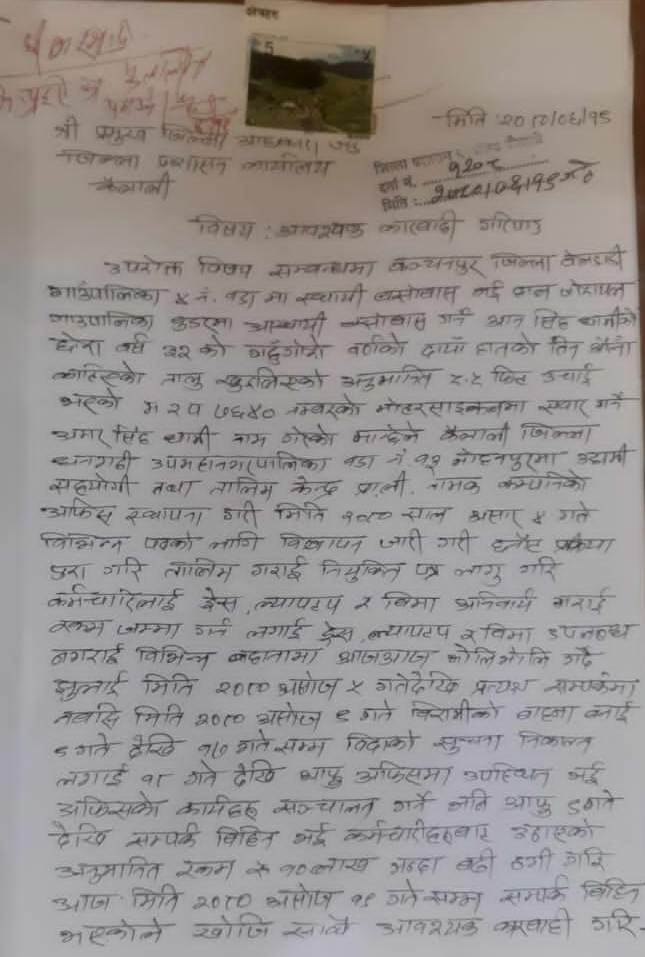 ५
मिति २०८०/०६/१५
श्री प्रमुख जिल्ला
जिल्ला प्रशासन कार्यालय
कैलाली
मिति :
विषय : आवश्यक कारवाही गरिपाउ
उपरोक्त विषय सम्बन्धमा कञ्चनपुर जिल्ला बेलडाडी
गाउँपालिका ४ नं. वडा मा स्थायी बसोबास भई हाल जोरायल
गाउपालिका अस्थायी बसोबास गर्ने सिंह धामीको
छोरा वर्ष ३२ को गहुँगोरो वर्णको दायाँ हातको तिन औंला
तालु खुइलिएको अनुमानित ५.५ फिट उचाई
भएको म २ प ७६४० नम्बरको मोटरसाइकलमा सवार गर्ने
अमर सिंह धामी नाम गरेको मान्छेले कैलाली जिल्ला
धनगढी उपमहानगरपालिका वडा नं १३ मोहनपुरमा उद्यमी
सहयोगी तथा तालिम केन्द्र प्रा.ली. नामक कम्पनिको
अफिस स्थापना गरी मिति २०८० साल असार ४ गते
विभिन्न पदको लागि विज्ञापन जारी गरी छनौट प्रक्रिया
पुरा गरि तालिम गराई नियुक्ति पत्र लागु गरि
कर्मचारीलाई ड्रेस, ल्यापटप र विमा अनिवार्य गराई
रकम जम्मा गर्न लगाई ड्रेस, ल्यापटप र विमा उपलब्ध
नगराई विभिन्न बहानामा आजआज भोलिभोलि गर्दै
झुलाई मिति २०८० असोज ४ गतेदेखि प्रत्यक्ष सम्पर्कमा
नबसि मिति २०८० असोज ८ गते विरामीको बाहना बनाई
८ गते देखि १७ गते सम्म विदाको सुचना निकाल्न
लगाई १८ गते देखि आफु अफिसमा उपस्थित भई
अफिसको कार्यहरु सञ्चालन गर्ने भनि आफु ८ गते
देखि सम्पर्क विहिन भई कर्मचारीहरुबाट उठाएको
अनुमानित रकम रु १० लाख भन्दा बढी ठगी गरि
आज मिति २०८० असोज १५ गते सम्म सम्पर्क विहिन
भएकोले खोजि आवश्यक कारवाही गरि-